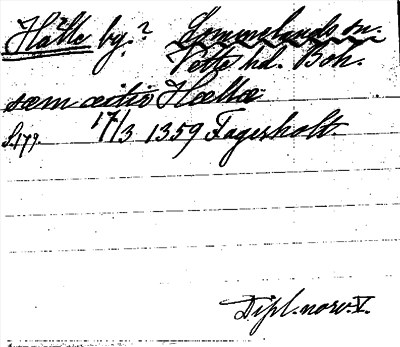 Hålle by? Lommelands sn.
Vette hd. Boh.
sæm æitir Hællæ
S.179. 17/3 1359 Fagerholt.
Dipl. norv. V.